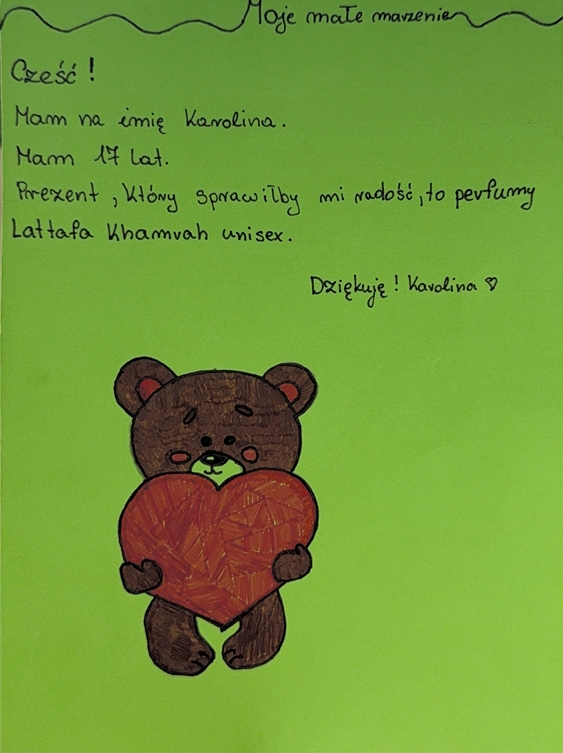 Moje małe marzenie
Cześć !
Mam na imię Karolina.
Mam 17 lat.
Prezent , który sprawiłby mi radość, to perfumy
Lattafa Khamrah unisex.
Dziękuję ! Karolina ♡